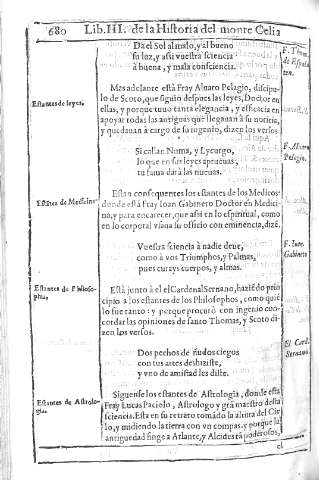 680 Lib.III. de la Historia del monte Celia
Da el Sol al mundo, y al bueno
su loz, y assi vuestra sciencia
à buena, y mala consciencia.
F. Thom.
de España
Mas adelante està Fray Aluaro Pelagio, discipu-
Estantes de leyes.
lo de Scoto, que siguiò despues las leyes, Doctor en
ellas, y porque tuuo tanta elegancia, y efficacia en
apoyar todas las antiguas que llegauan à su noticia,
y quedauan à cargo de su ingenio, dizen los versos.
Si callan Numa, y Lycurgo,
lo que en sus leyes aprueuas,
tu fama darà las nueuas.
F. Aluaro
Pelagio.
Estan consequentes los estantes de los Medicos
Estātes de Medicina
donde està Fray Ioan Gabinero Doctor en Medici-
na, y para encarecer, que assi en lo espiritual, como
en lo corporal vsaua su officio con eminencia, dizē.
Vuestra sciencia à nadie deue,
como à vos Triumphos, y Palmas,
pues curays cuerpos, y almas.
F. Ioan
Gabinero
Està junto à el el Cardenal Sernano, haziēdo prin
Estantes de Philoso-
phia,
cipio à los estantes de los Philosophos, como quiē
lo fue tanto: y porque procurò con ingenio con-
cordar las opiniones de santo Thomas, y Scoto di-
zen los versos.
Dos pechos de ñudos ciegos
con tus artes desataste,
y vno de amistad les diste.
El Card.
Sernano.
Siguense los estantes de Astrologia, donde està
Estantes de Astrolo-
gia.
Fray Lucas Paciolo, Astrologo y grā maestro desta
sciencia. Esta en su retrato tomādo la altura del Cie
lo, y midiendo la tierra con vn compas. y porque la
antiguedad finge a Atlante, y Alcides tā poderosos,
el